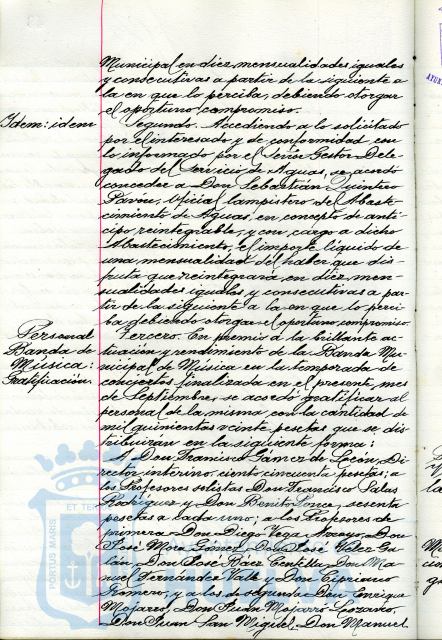 Municipal en diez mensualidades iguales
y consecutivas a partir de la siguiente a
la en que lo perciba, debiendo otorgar
el oportuno compromiso.
Idem: idem
Segundo. Accediendo a lo solicitado
por el interesado y de conformidad con
lo informado por el Señor Gestor Dele-
gado del Servicio de Aguas, se acordó
conceder a Don Sebastián Quintero
Pavón, Oficial lampistero del Abaste-
cimiento de Aguas, en concepto de anti-
cipo reintegrable, y con cargo a dicho
Abastecimiento, el importe líquido de
una mensualidad del haber que dis-
fruta que reintegrará en diez men-
sualidades iguales y consecutivas a par-
tir de la siguiente a la en que lo perci-
ba debiendo otorgar el oportuno compromiso.
Personal
Banda de
Música:
Gratificación.
Tercero. En premio a la brillante ac-
tuación y rendimiento de la Banda Mu-
nicipal de Música en la temporada de
conciertos finalizada en el presente mes
de Septiembre, se acordó gratificar al
personal de la misma con la cantidad de
mil quinientas veinte pesetas que se dis-
tribuirán en la siguiente forma:
A Don Francisco Gámez de León, Di-
rector interino, ciento cincuenta pesetas; a
los Profesores solistas Don Francisco Salas
Rodríguez y Don Benito Ponce, sesenta
pesetas a cada uno; a los Profesores de
primera Don Diego Vega Arroyo, Don
José Mora Gómez, Don José Vélez Ga-
lán, Don José Báez Centella, Don Ma-
nuel Fernández Valle y Don Cipriano
Romero, y a los de segunda Don Enrique
Mojarro, Don Juan Mojarro Lozano,
Don Juan San Miguel, Don Manuel
PORTUS MARIS
ET TER